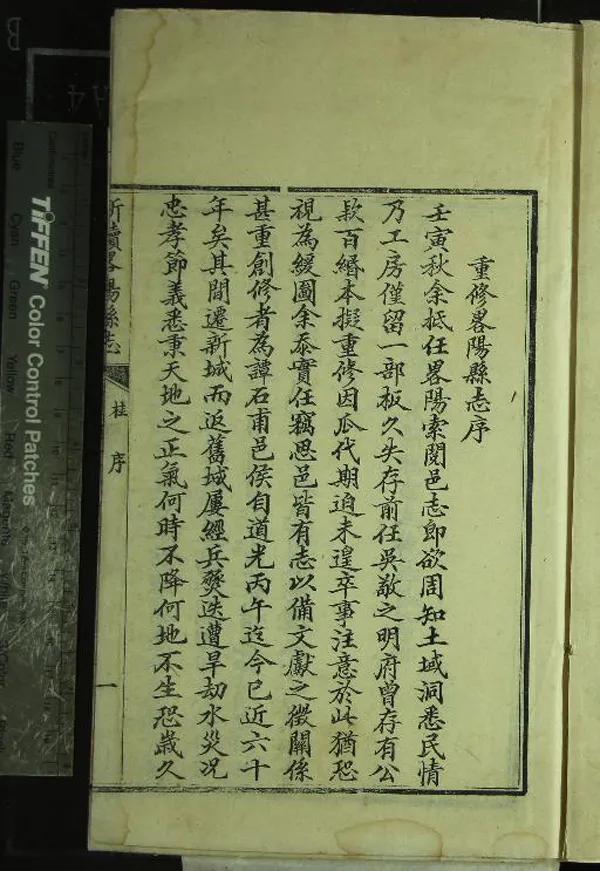 重修畧陽縣志序
壬寅秋余抵任畧陽索閱邑志即欲周知土域洞悉民情
乃工房僅留一部板久失存前任吳敬之明府曾存有公
款百緡本擬重修因瓜代期迫未遑卒事注意於此猶恐
視為緩圖余忝實任竊思邑皆有志以備文獻之徵關係
甚重創修者為譚石甫邑侯自道光丙午迄今已近六十
年矣其間遷新城而返舊城屢經兵燹迭遭旱劫水災况
忠孝節義悉秉天地之正氣何時不降何地不生恐歲久
新續畧陽縣志
桂序
一
TIFFEN Color Control Patches
Blue
Cyan
Green
Yellow
Red
Magenta
Centimetres